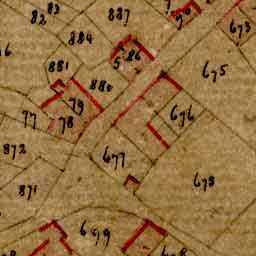 83
82
887
673
884
86
881
675
880
79
676
77
78
872
677
678
871
699